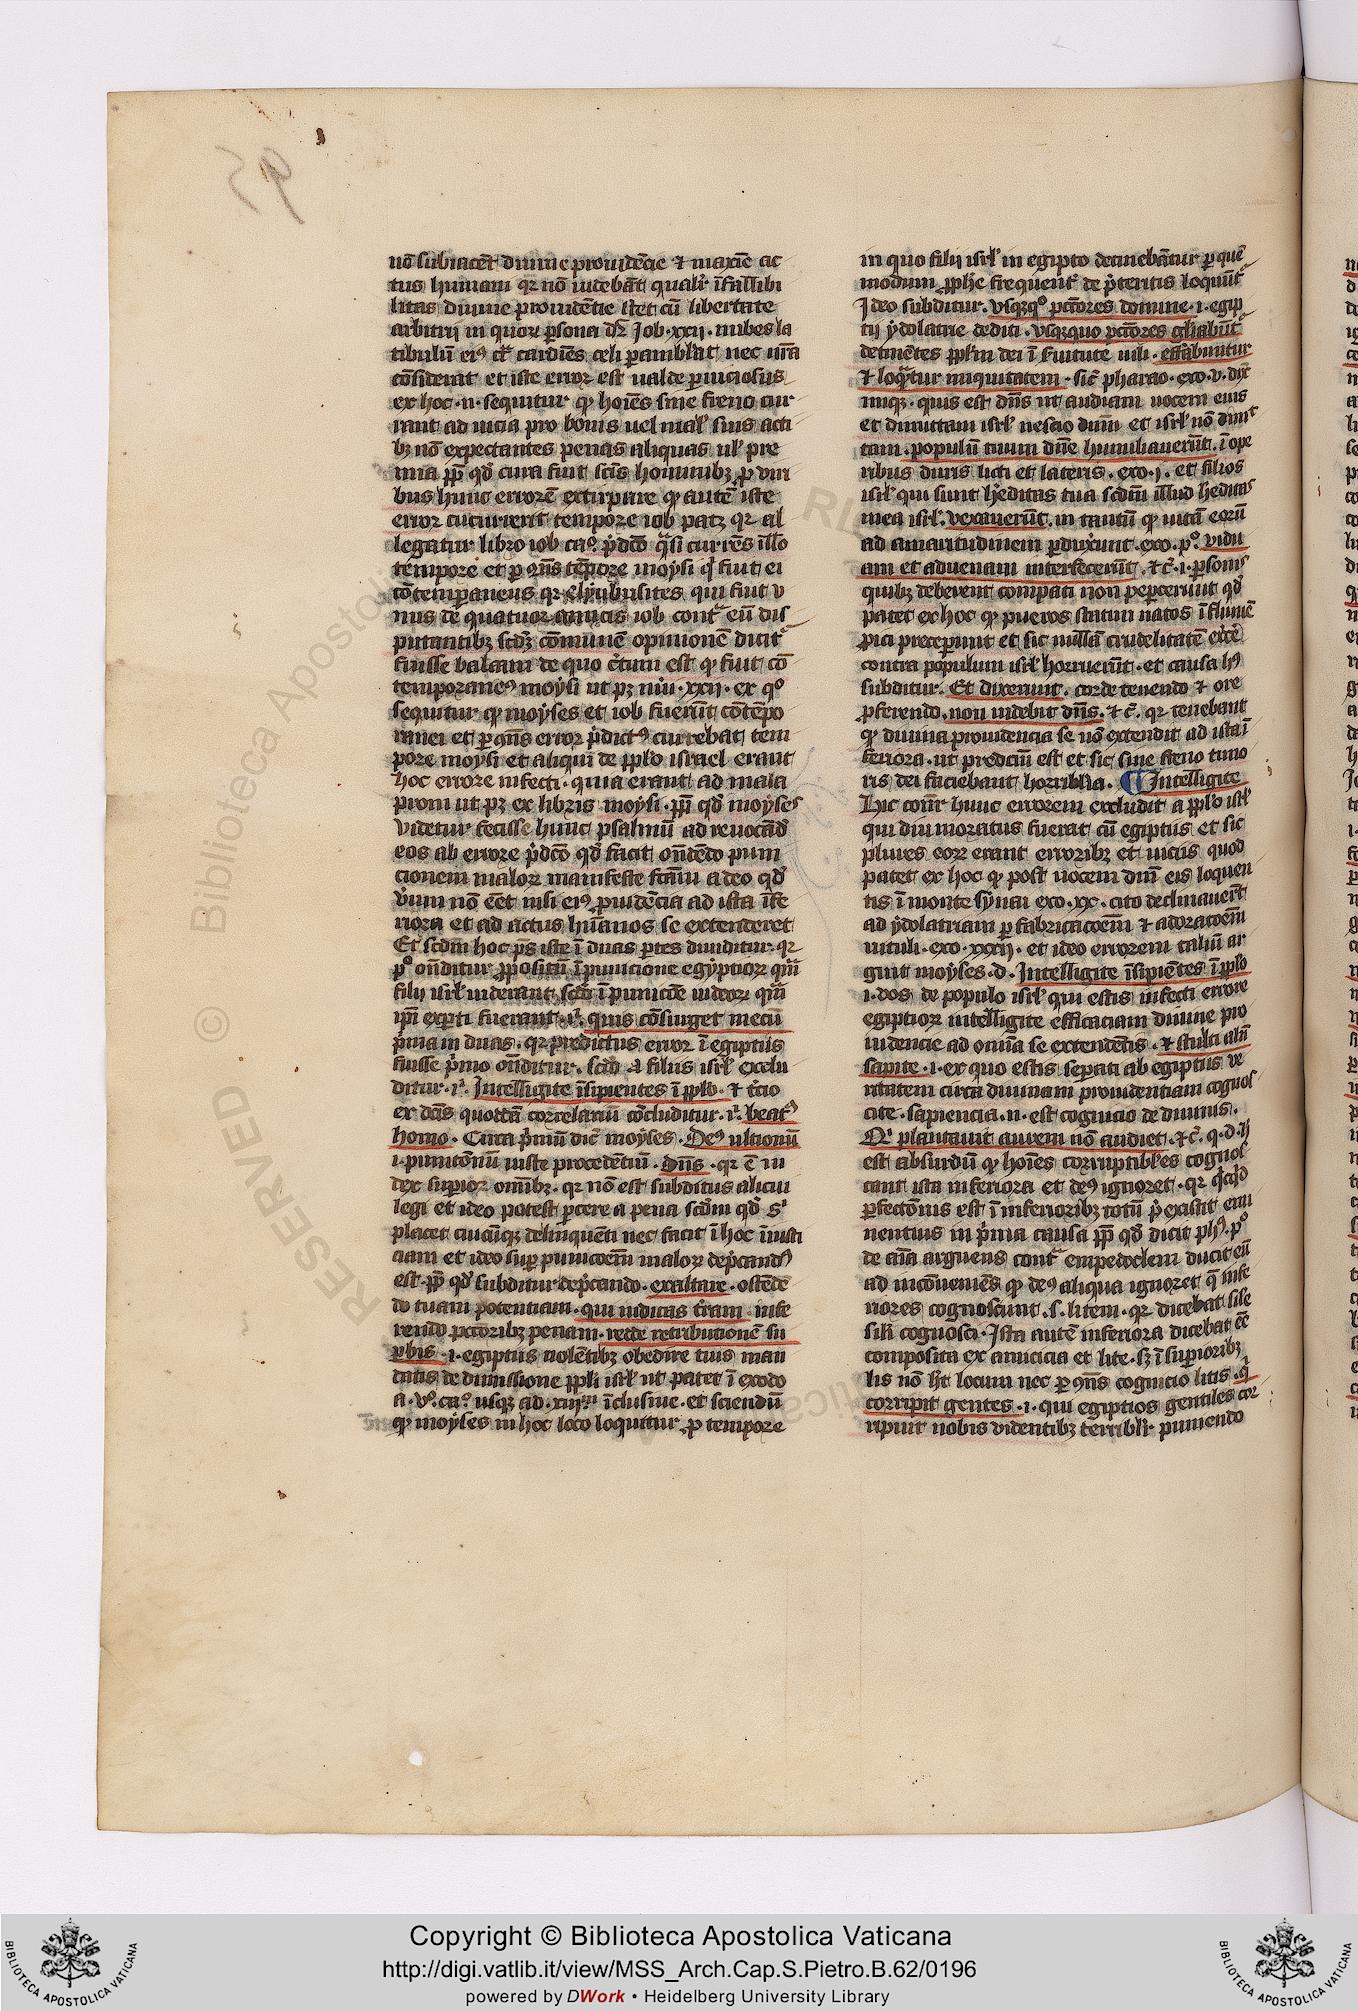 nō subiacēt diuīe prouidēcie ⁊ maxīe ac
tus humani qꝛ nō uidebāt qualiť īfallibi
litas diuine prouidētie stet cū libertate
arbitrii in quoꝝ ꝑsona dꝛ Job · xxii · nubes la
tibulū eiꝰ et̄ cardiēs celi ꝑamblat nec nr̄a
cōsiderat et iste error est ualde ꝑniciosus
ex hoc · n · sequitur ꝙ hoīes sine freno cur
runt ad uicia pro bonis uel mal̄ suis acti
bꝫ nō expectantes penas aliquas ul̄ pre
mia ꝓp̄ qđ cura fuit scīs hominibꝫ ꝓ viri
bus hunc errorē extirpare ꝙ autē iste
error cucurrerit tempore iob patꝫ qꝛ al
legatur libro iob caꝰ · p̄dcō q̄si currēs īllo
tēmpore et ꝑ ꝯn̄s tēpore moysi q̄ fuit ei
cōtemꝑaneus qꝛ elyubusites qui fuit v
nus de quatuor amicis iob contᵃ eū dis
putantibꝫ scđꝫ cōmunē opinionē dicit̄
fuisse balaam de quo c̄tum est ꝙ fuit cō
temporaneꝰ moysi ut pꝫ nūi · xxii · ex qº
sequitur ꝙ moyses et iob fuerūt cōtēpo
ranei et ꝑ ꝯn̄s error p̄dictꝰ currebat tem
pore moysi et aliqui de ppl̄o israel erant
hoc errore infecti · quia erant ad mala
proni ut pꝫ ex libris moysi · ꝓp̄ qđ moyses
videtur fecisse hunc psalmū ad reuocād̄
eos ab errore p̄dcō qđ facit on̄dēdo puni
cionem maloꝝ manifeste fcām a deo qđ
v̄um nō eēt nisi eiꝰ ꝓuidēcia ad ista īfe
riora et ad actus hūanos se extenderet
Et scđm hoc p̄s iste ī duas ꝑtes diuiditur · qꝛ
pº on̄ditur ꝓpositū ī punicione egyptioꝝ quā
filii isrl̄ uiderant scđo ī punicōe iudeoꝝ quā
ip̄i exꝑti fuerant · iº · quis cōsurget mecū
p̄ma in duas · qꝛ predictus error ī egiptiis
fuisse p̄mo on̄ditur · scđo a filiis isrl̄ exclu
ditur · iº · Intelligite īsipientes ī ppl̄o · ⁊ t̄cio
ex dc̄is quoddā correlariū cōcluditur · iº · beatꝰ
homo · Circa p̄mū dic̄ moyses · Deꝰ ultionū
i · punitōnū iuste procedētiū · Dn̄s · qꝛ ē iu
dex suꝑior om̄ibꝫ · qꝛ nō est subditus alicui
legi et ideo potest ꝑcere a pena scđm qđ sⁱ
placet cuicūqꝫ delinquēti nec facit ī hoc īiusti
ciam et ideo suꝑ punicōem maloꝝ dep̄candꝰ
est · ꝓp̄ qđ subditur dep̄cando · exaltare · ostēdē
do tuam potentiam · qui iudicas t̄ram · infe
rendo pctōribꝫ penam · redde retributionē su
ꝑbis · i · egiptiis nolētibꝫ obedire tuis man
datis de dimissione ppl̄i isrl̄ ut patet ī exodo
a · vº · caº · usqꝫ ad · xiiiiᵐ · īclusiue · et sciendū
ꝙ moyses in hoc loco loquitur ꝓ tempore
in quo filii isrl̄ in egipto detinebātur ꝑ quē
modum ꝓph̄e frequent̄ de p̄teritis loquūt̄
Ideo subditur · vsqꝫqº pctōres domine · i · egip
tii ydolatrie dediti · vsqꝫquo pctōres gl̄iabūt̄
detinētes ppl̄m dei ī s̄uitute uili · effabuntur
⁊ loq̄ntur iniquitatem · sic̄ pharao · exo · v · dix
itniqꝫ · quis est dn̄s ut audiam uocem eius
et dimittam isrl̄ nescio dn̄m et isrl̄ nō dimit
tam · populū tuum dn̄e humiliauerūt · ī ope
ribus duris luti et lateris · exo · j · et filios
isrl̄ qui sunt h̄editas tua scđm illud h̄editas
mea isrl̄ · vexauerūt · in tantū ꝙ uitā eorū
ad amaritudinem ꝑduxerunt · exo · pº · vidu
am et aduenam interfecerūt · ⁊c̄ · i · ꝑsonis
quibꝫ debebent compati non peꝑcerunt qđ
patet ex hoc ꝙ pueros statim natos ī flumē
ꝓici preceꝑunt et sic nullā crudelitatē exc̄ē
contra populum isrl̄ horruerūt · et causa hꝰ
subditur · Et dixerunt · corde tenendo ⁊ ore
ꝓferendo · non uidebit dn̄s · ⁊c̄ · qꝛ tenebant
ꝙ diuina prouidencia se nō extendit ad ista ī
feriora · ut predcm̄ est et sic sine freno timo
ris dei faciebant horriblia · ¶ Intelligite
Hic cont̄ hunc errorem excludit a ppl̄o isrl̄
qui diu moratus fuerat cū egiptiis et sic
plures eoꝝ erant erroribꝫ et uiciis quod
patet ex hoc ꝙ post uocem dn̄i eis loquen
tis ī monte synai exo · xx · cito declinauer̄t
ad ydolatriam ꝑ fabricacōem ⁊ adoracōem
uituli · exo · xxxij · et ideo errorem taliū ar
guit moyses · d · Intelligite īsipiētes ī ppl̄o
i · vos de populo isrl̄ qui estis infecti errore
egiptioꝝ intelligite efficaciam diuine pro
uidencie ad omīa se extendētis · ⁊ stulti aliq̄
sapite · i · ex quo estis seꝑati ab egiptiis ve
ritatem circa diuinam prouidentiam cognos
cite · sapiencia · n · est cognicio de diuinis ·
Qⁱ plantauit aurem nō audiet · ⁊c̄ · q · d · ij
est absurdū ꝙ hoīes corruptibles cognos
cant ista inferiora et deꝰ ignoret · qꝛ q̄cq̄d
ꝑfectōnis est ī inferioribꝫ totū p̄exīstit emi
nentius in p̄ma causa ꝓp̄ qđ dicit ph̄s · pº
de aīa arguens contᵃ empedoclem ducit eū
ad incōueniēs ꝙ deꝰ aliqua ignoret q̄ infe
riores cognoscunt · s · litem · qꝛ dicebat sile
sili cognosci · Ista autē inferiora dicebat eē
composita ex amicicia et lite · sꝫ ī suꝑioribꝫ
lis nō h̄t locum nec ꝑ ꝯn̄s cognicio litis · qⁱ
corripit gentes · i · qui egiptios gentiles cor
ripuit nobis videntibꝫ terribl̄r puniendo
Copyright © Biblioteca Apostolica Vaticana
http://digi.vatlib.it/view/MSS_Arch.Cap.S.Pietro.B.62/0196
powered by DWork • Heidelberg University Library